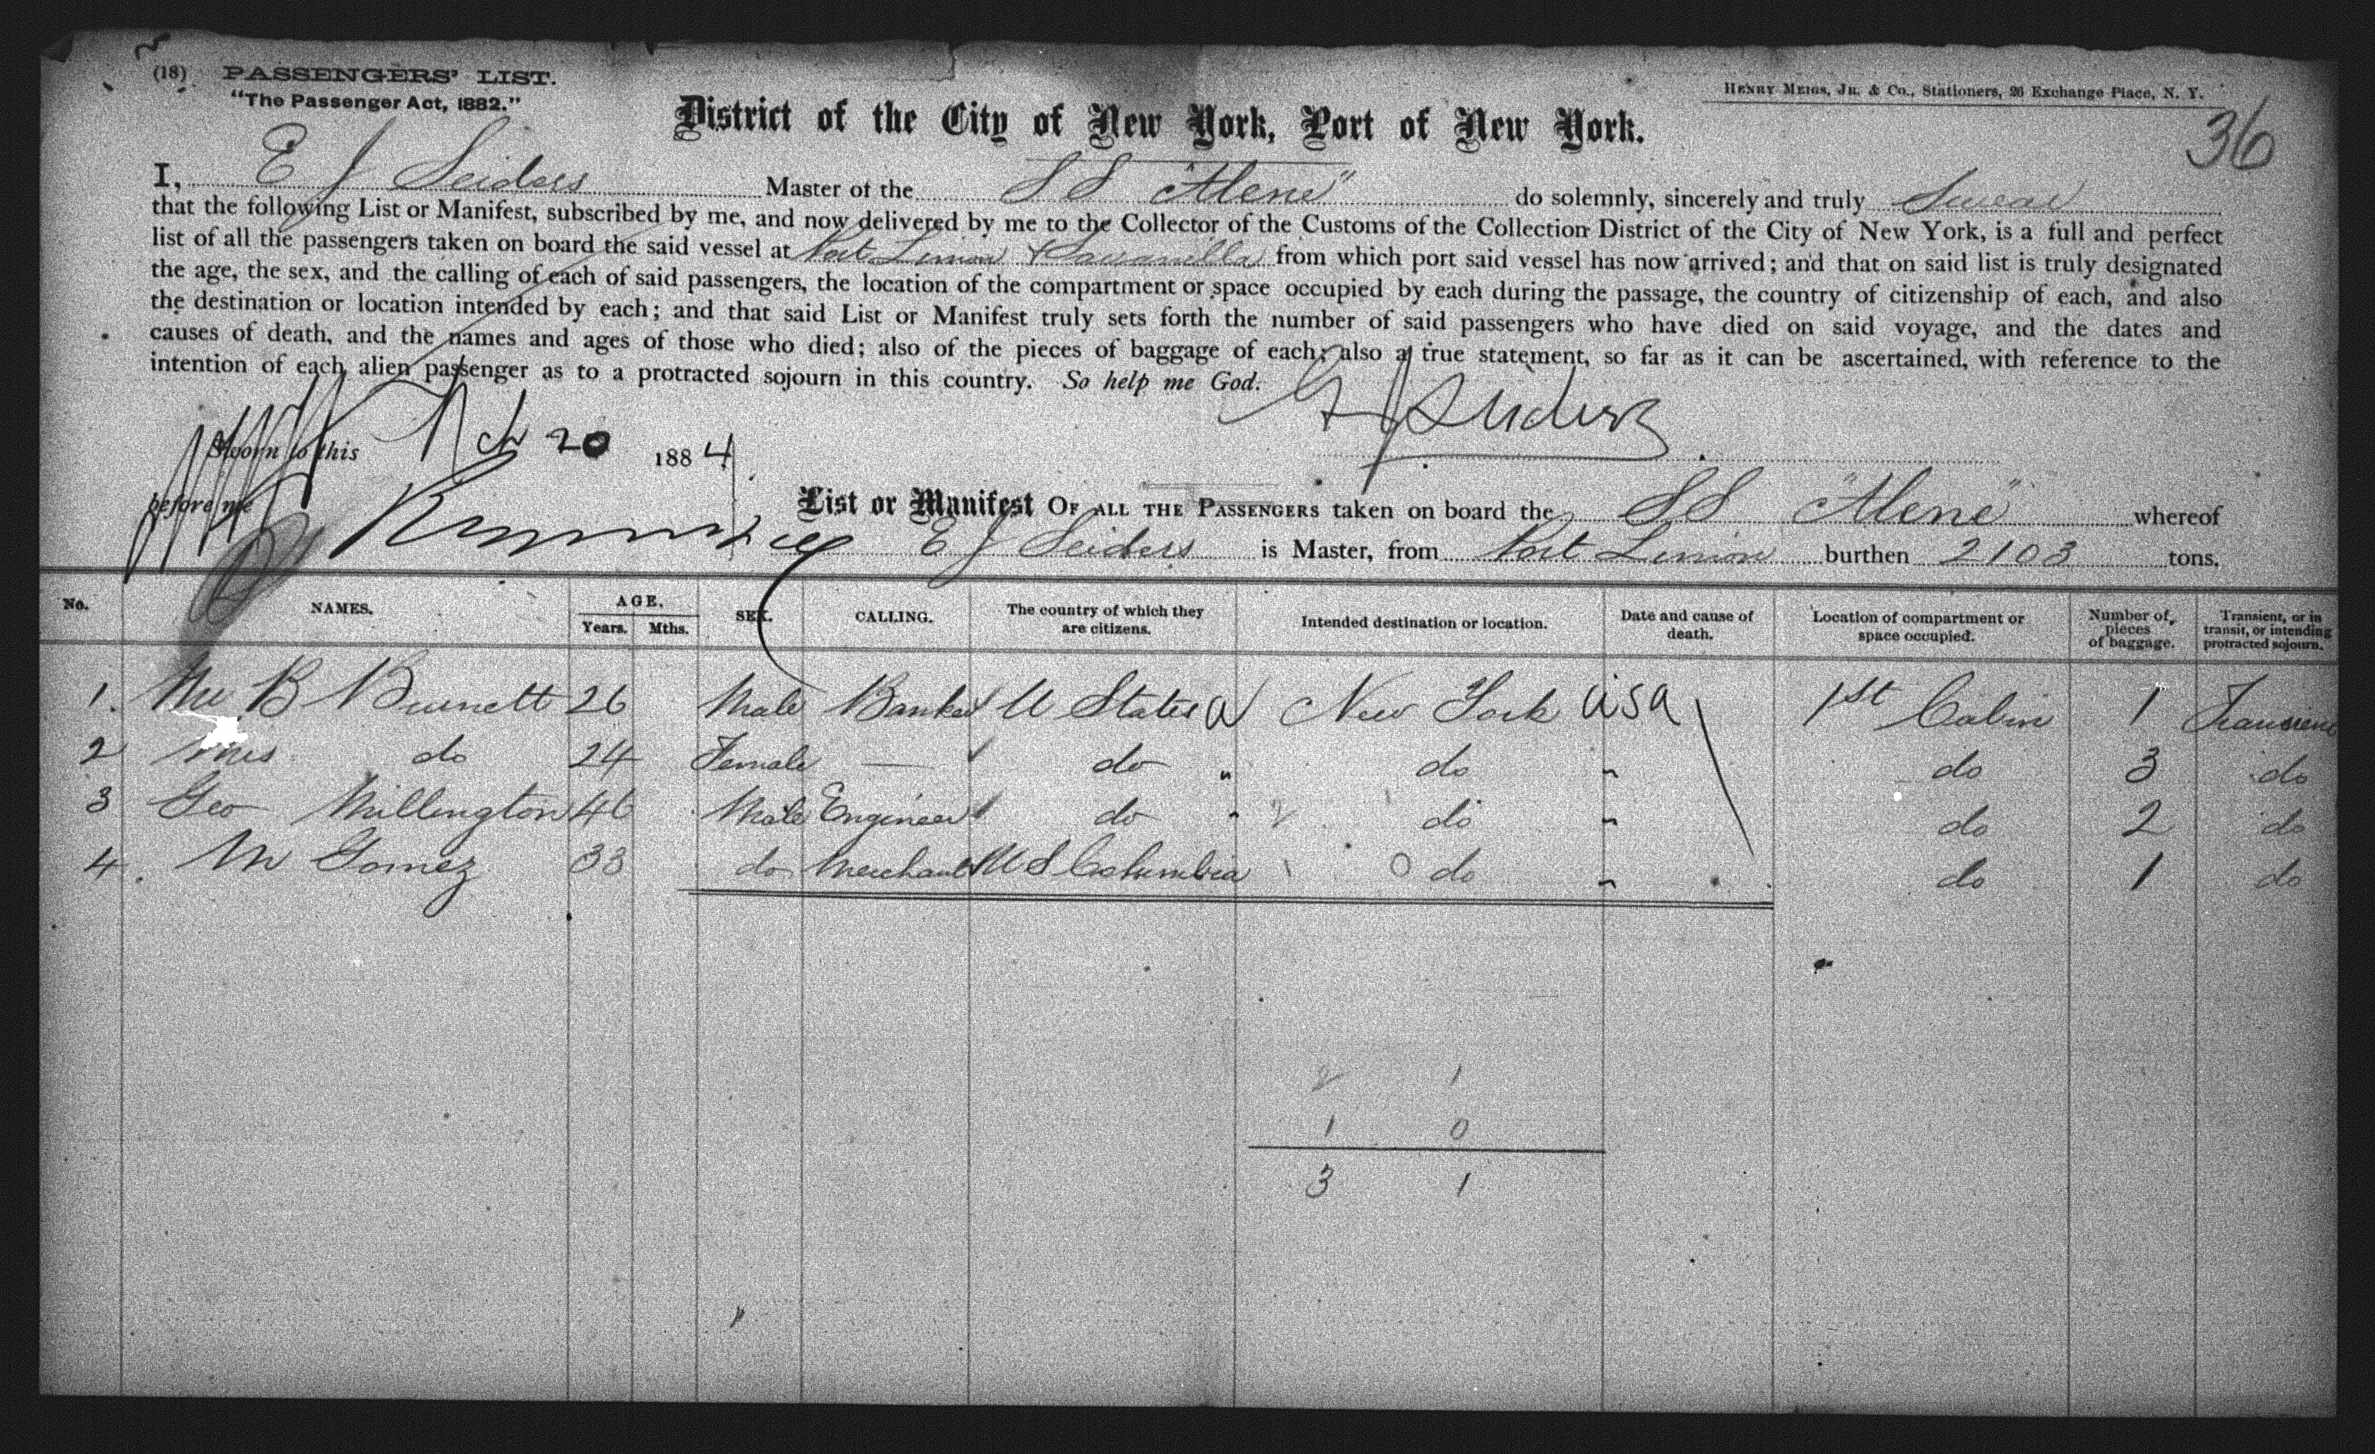 (18) PASSENGERS' LIST.
"The Passenger Act, 1882."
HENRY MEIGS, JR. & CO., Stationers, 26 Exchange Place, N. Y.
District of the City of New York, Port of New York.
36
I, E J Seiders Master of the S S "Alene" do solemnly, sincerely and truly Swear
that the following List or Manifest, subscribed by me, and now delivered by me to the Collector of the Customs of the Collection District of the City of New York, is a full and perfect
list of all the passengers taken on board the said vessel at Port Limon & Savanilla from which port said vessel has now arrived; and that on said list is truly designated
the age, the sex, and the calling of each of said passengers, the location of the compartment or space occupied by each during the passage, the country of citizenship of each, and also
the destination or location intended by each; and that said List or Manifest truly sets forth the number of said passengers who have died on said voyage, and the dates and
causes of death, and the names and ages of those who died; also of the pieces of baggage of each; also a true statement, so far as it can be ascertained, with reference to the
intention of each alien passenger as to a protracted sojourn in this country. So help me God.
E J Seiders
Sworn to this 20 1884
before me
List or Manifest OF ALL THE PASSENGERS taken on board the S S "Alene" whereof
E J Seiders is Master, from Port Limon burthen 2103 tons.
No. NAMES. AGE. Years. Mths. SEX. CALLING. The country of which they are citizens. Intended destination or location. Date and cause of death. Location of compartment or space occupied. Number of pieces of baggage. Transient, or in transit, or intending protracted sojourn.
1. Mr B Burnett 26 Male Banker U States a New York USA 1st Cabin 1 Transient
2 Mrs do 24 Female — do " do " do 3 do
3 Geo Millington 46 Male Engineer do " do " do 2 do
4. M Gomez 33 do Merchant U S Columbia 0 do " do 1 do
2 1
1 0
3 1